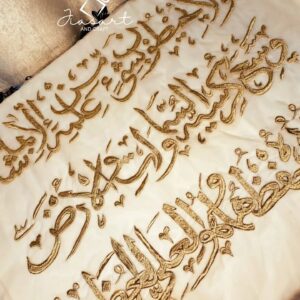 Jiasart
AND CRAFT
ولا يحيطون بشيء من علمه إلا بما شاء
وسع كرسيه السموات والأرض
حفظهما وهو العلي العظيم